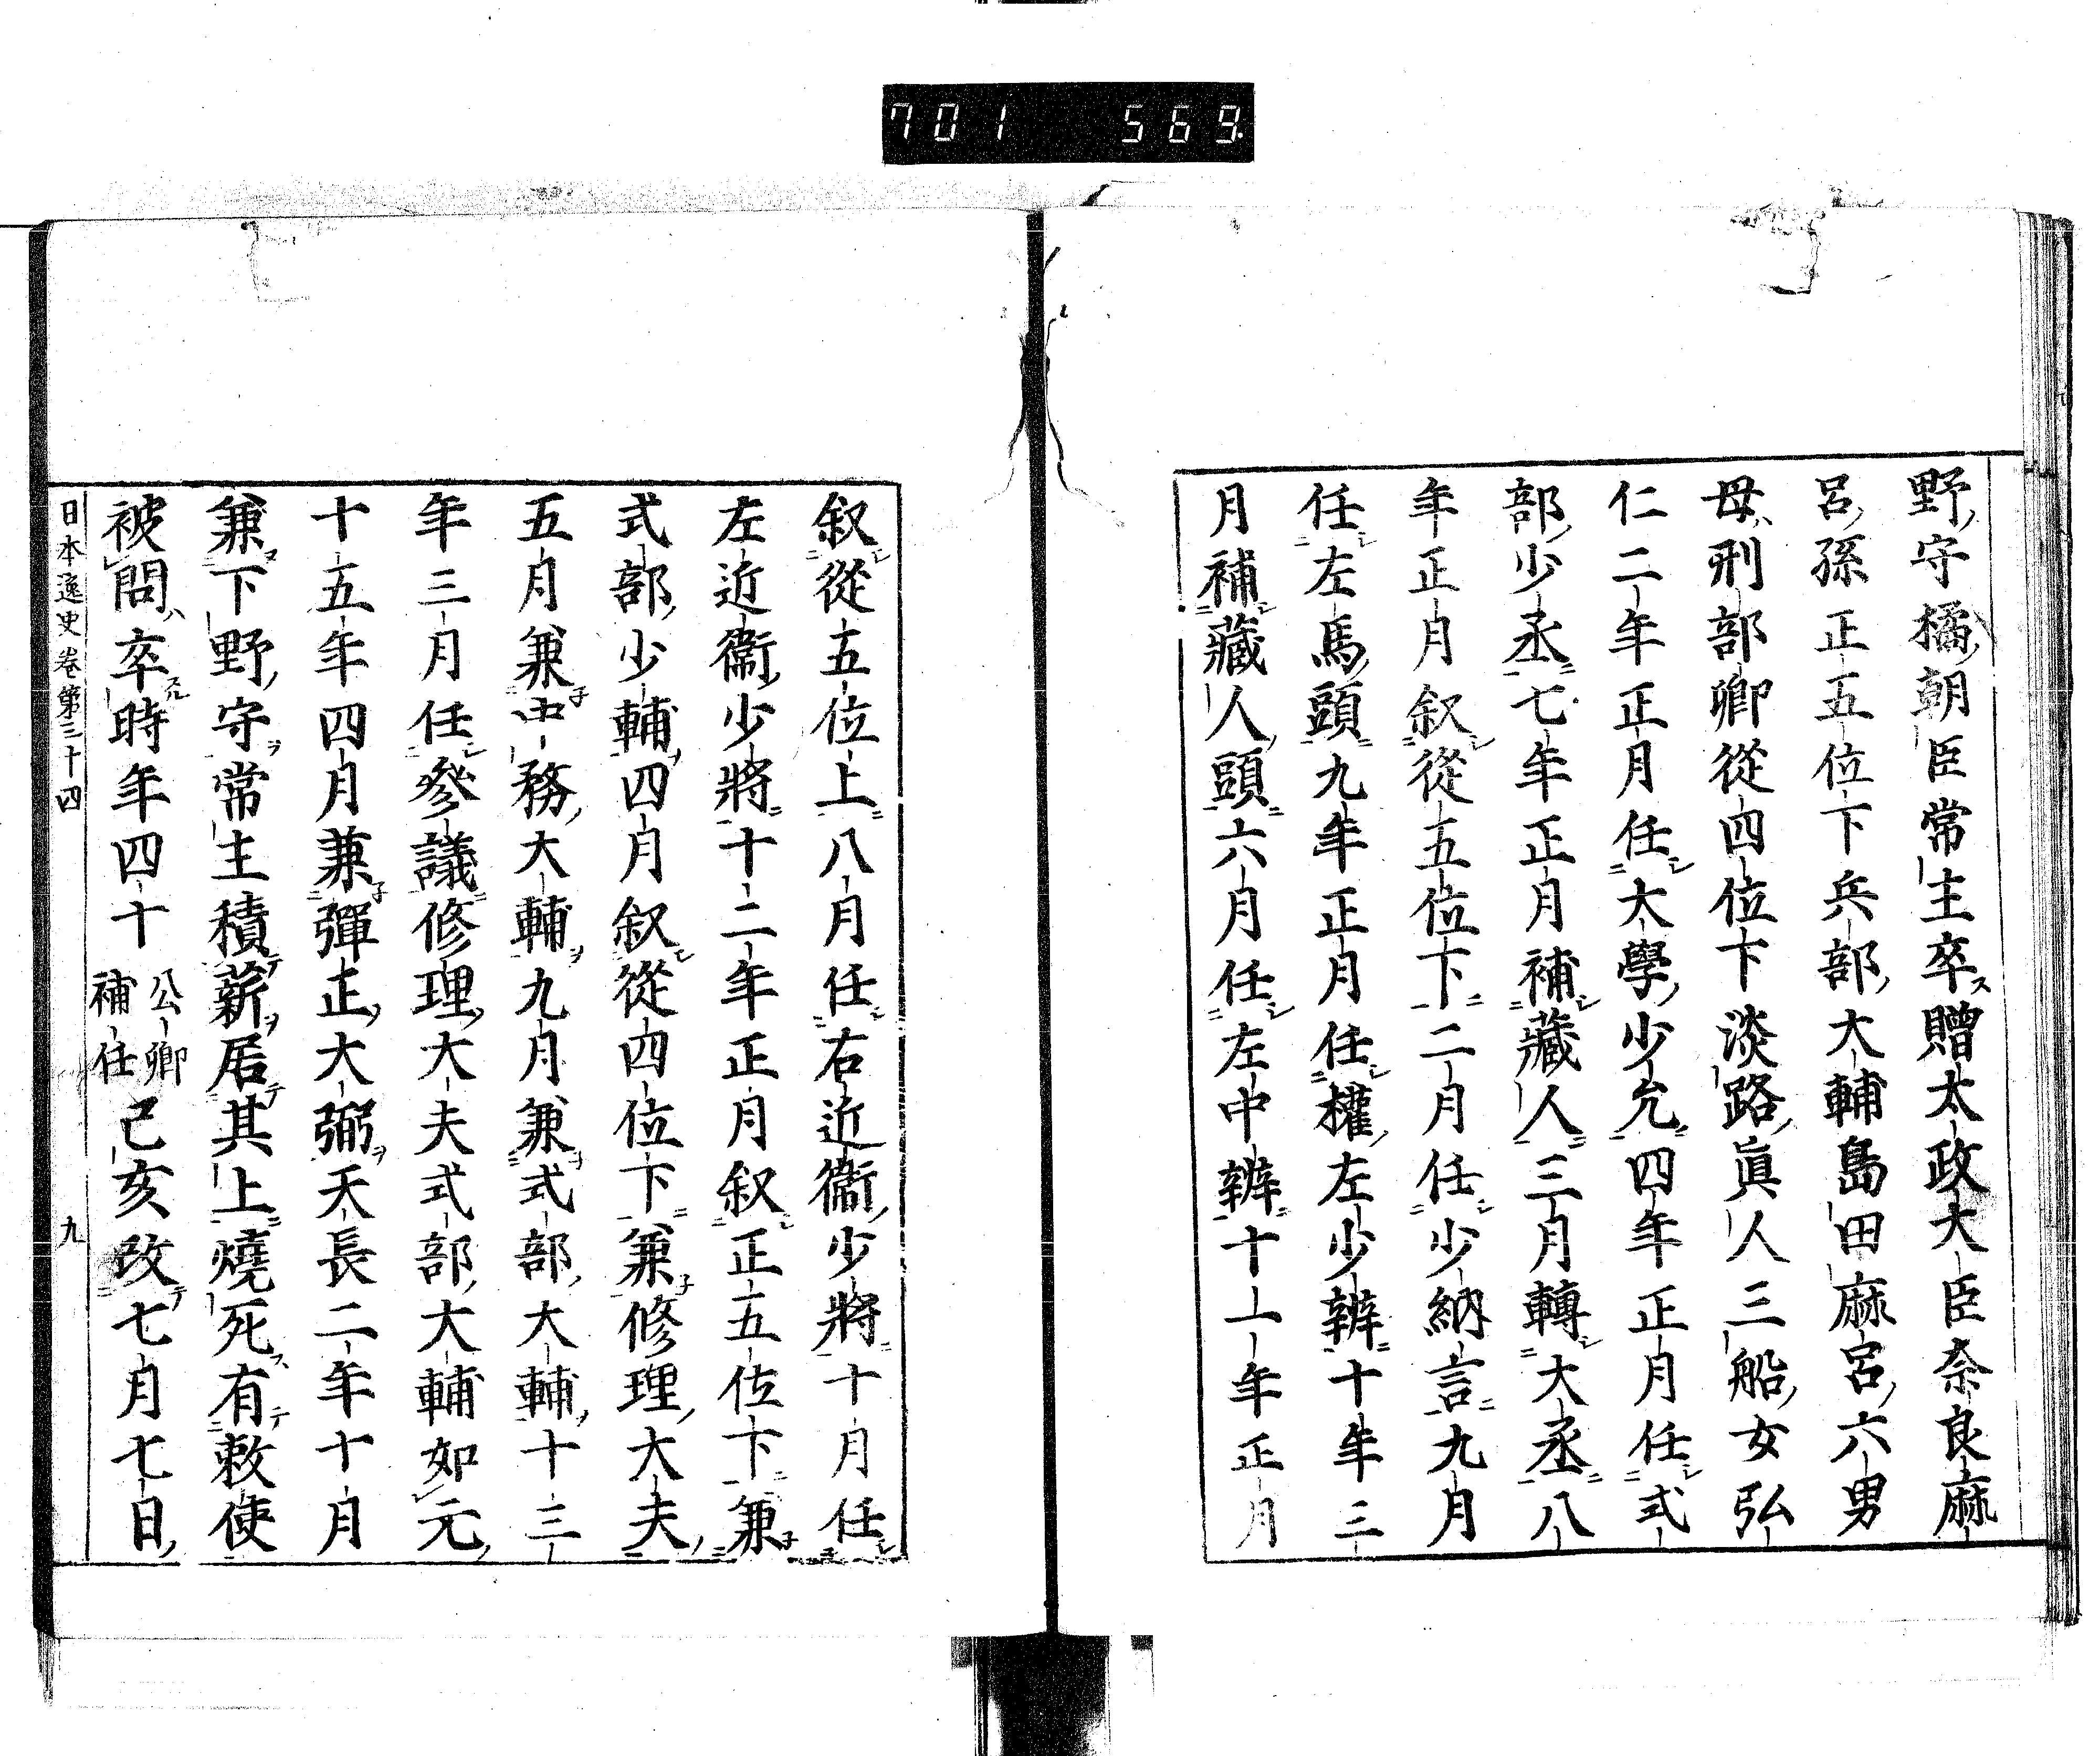 701 569
野守橘朝臣常主卒贈太政大臣奈良麻
呂孫正五位下兵部大輔島田麻呂六男
母刑部卿從四位下淡路眞人三船女弘
仁二年正月任大學少允四年正月任式
部少丞七年正月補藏人三月轉大丞八
年正月叙從五位下二月任少納言九月
任左馬頭九年正月任權左少辨十年三
月補藏人頭六月任左中辨十一年正月
叙從五位上八月任右近衞少將十月任
左近衞少將十二年正月叙正五位下兼
式部少輔四月叙從四位下兼修理大夫
五月兼中務大輔九月兼式部大輔十三
年三月任參議修理大夫式部大輔如元
十五年四月兼彈正大弼天長二年十月
兼下野守常主積薪居其上燒死有敕使
被問卒時年四十公卿補任己亥改七月七日
日本逸史卷第三十四 九